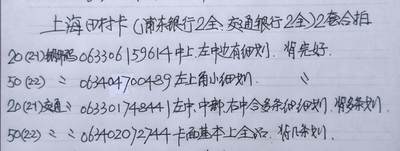 上海田村卡(浦东银行2全、交通银行2全)2套合拍
20(2-1) 063306159614中上.左中边有细划. 背完好.
50(2-2) 〃 063404700489左上角小细划. 〃
20(2-1)交通〃 063301748441左中、中部、右中含多条细细划. 背多条划.
50(2-2) 〃 〃 063402072744卡面基本上全品. 背几条划.